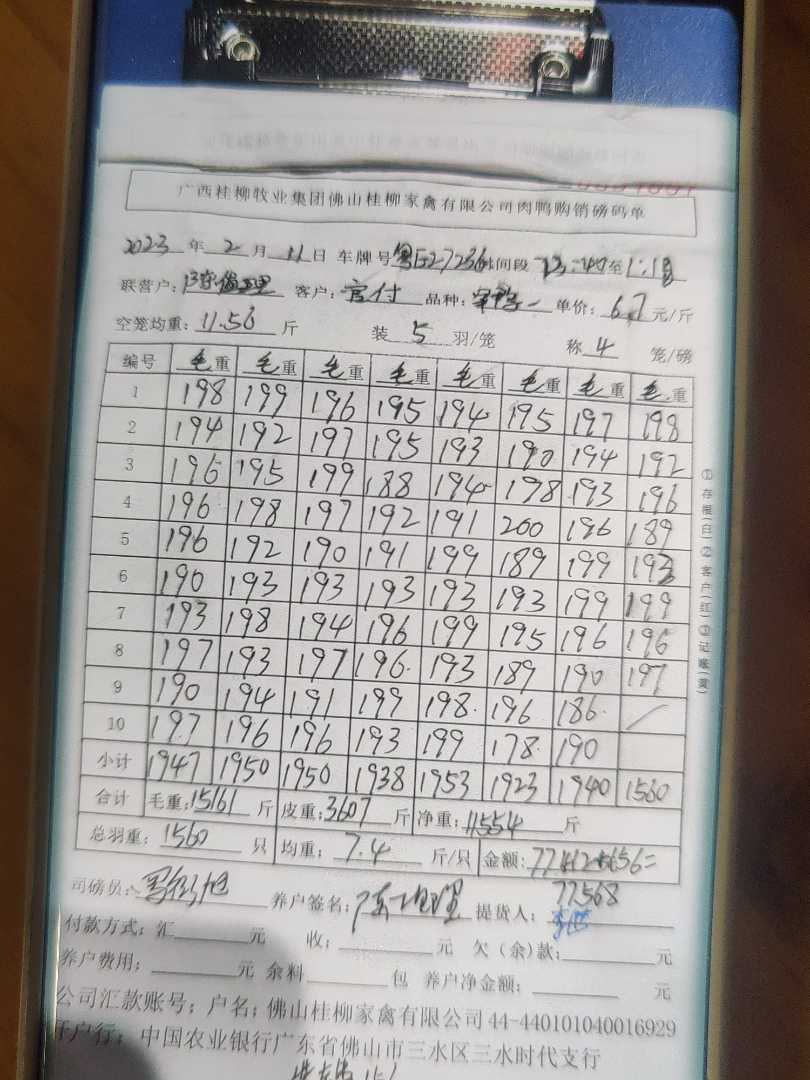 广西桂柳牧业集团佛山桂柳家禽有限公司肉鸭购销磅码单
2023 年 2 月 11 日 车牌号 粤E27236 时间段 12:40 至 1:18
联营户: 客户: 官付 品种: 单价: 6.7 元/斤
空笼均重: 11.56 斤 装 5 羽/笼 称 4 笼/磅
编号 毛重 毛重 毛重 毛重 毛重 毛重 毛重 毛重
1 198 199 196 195 194 195 197 198
2 194 192 197 195 193 190 194 192
3 196 195 199 188 194 198 193 196
4 196 198 197 192 191 200 196 189
5 196 192 190 191 199 189 199 193
6 190 193 193 193 193 193 199 199
7 193 198 194 196 199 195 196 196
8 197 193 197 196 193 189 190 197
9 190 194 191 199 198 196 186 /
10 197 196 196 193 199 178 190
小计 1947 1950 1950 1938 1953 1923 1940 1560
合计 毛重: 15161 斤 皮重: 3607 斤 净重: 11554 斤
总羽重: 1560 只 均重: 7.4 斤/只 金额: 77412+156=
77568
司磅员: 养户签名: 提货人:
付款方式: 汇 元 收: 元 欠(余)款: 元
养户费用: 元 余料 包 养户净金额: 元
公司汇款账号; 户名; 佛山桂柳家禽有限公司 44-440101040016929
开户行; 中国农业银行广东省佛山市三水区三水时代支行
①存根(白)②客户(红)③记账(黄)